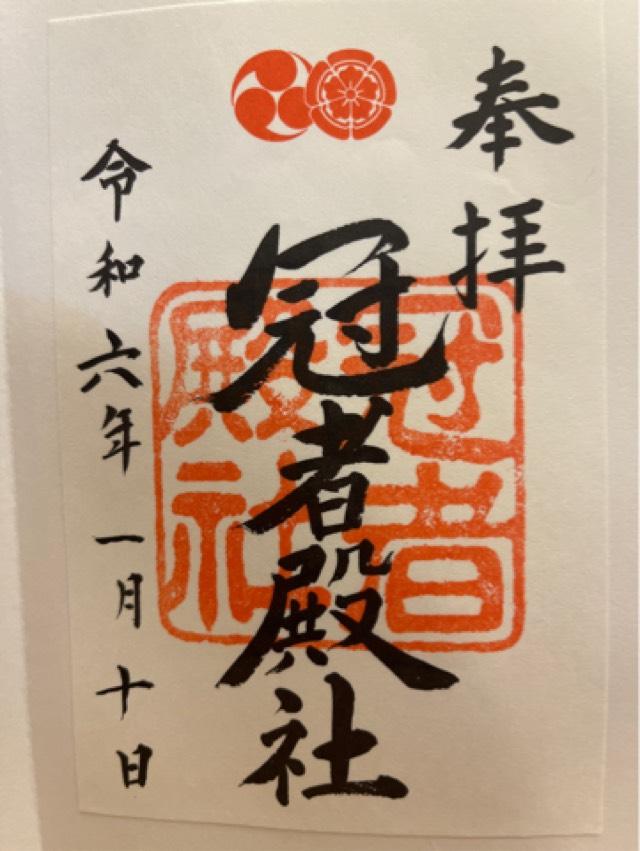 奉拝
冠者殿社
冠者
殿社
令和六年一月十日